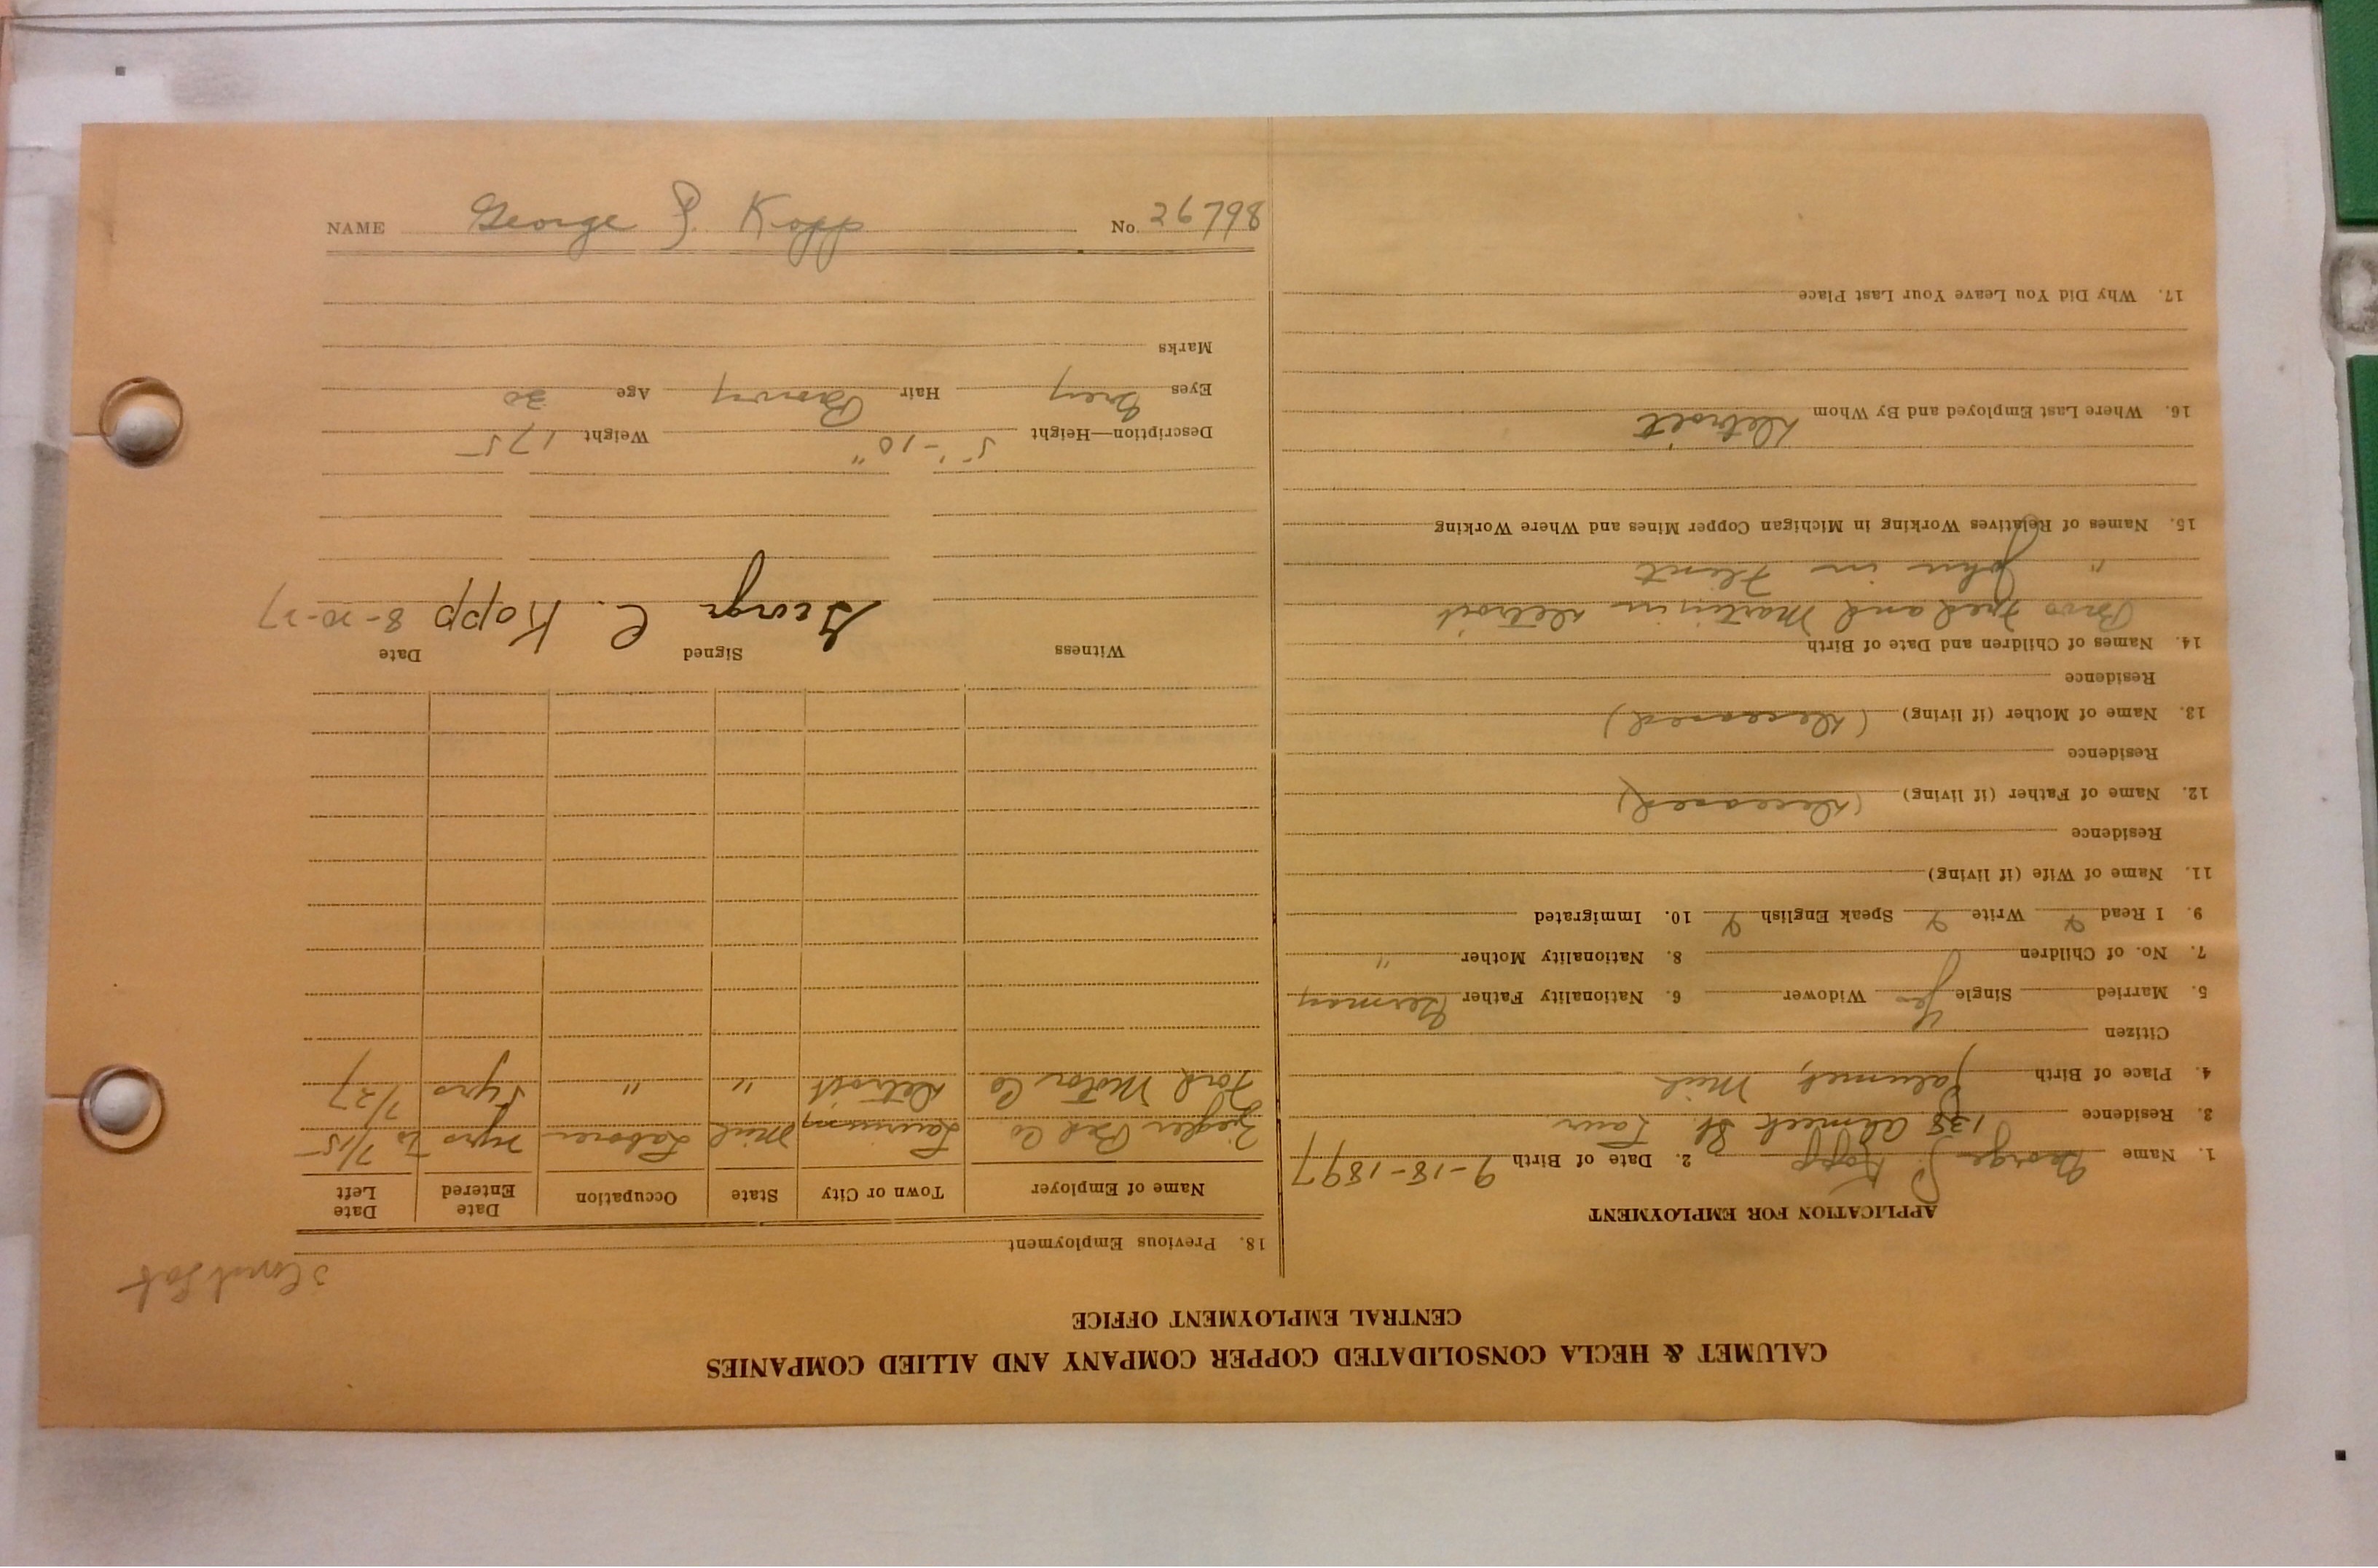 CALUMET & HECLA CONSOLIDATED COPPER COMPANY AND ALLIED COMPANIES
CENTRAL EMPLOYMENT OFFICE
APPLICATION FOR EMPLOYMENT
1. Name George P. Kopp 2. Date of Birth 9-18-1897
3. Residence 138 Ahmeek St. Laur
4. Place of Birth Calumet, Mich
Citizen Yes
5. Married Single Yes Widower 6. Nationality Father German
7. No. of Children 8. Nationality Mother "
9. I Read Write Speak English 10. Immigrated
11. Name of Wife (if living)
Residence
12. Name of Father (if living) (Deceased)
Residence
13. Name of Mother (if living) (Deceased)
Residence
14. Names of Children and Date of Birth
Bros Fred and Martin in Detroit
" John in Flint
15. Names of Relatives Working in Michigan Copper Mines and Where Working
16. Where Last Employed and By Whom Detroit
17. Why Did You Leave Your Last Place
18. Previous Employment
Name of Employer Town or City State Occupation Date Entered Date Left
Ziegler Co. Mich Laborer 7/15
Ford Motor Co Detroit " " 5 yrs 7/27
Witness Signed Date
George C. Kopp 8-20-27
Description—Height 5'-10" Weight 175
Eyes Grey Hair Brown Age 30
Marks
NAME George P. Kopp No. 26798